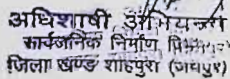 अधिशाषी अभियन्ता
सार्वजनिक निर्माण विभाग
जिला खण्ड शाहपुरा (जयपुर)